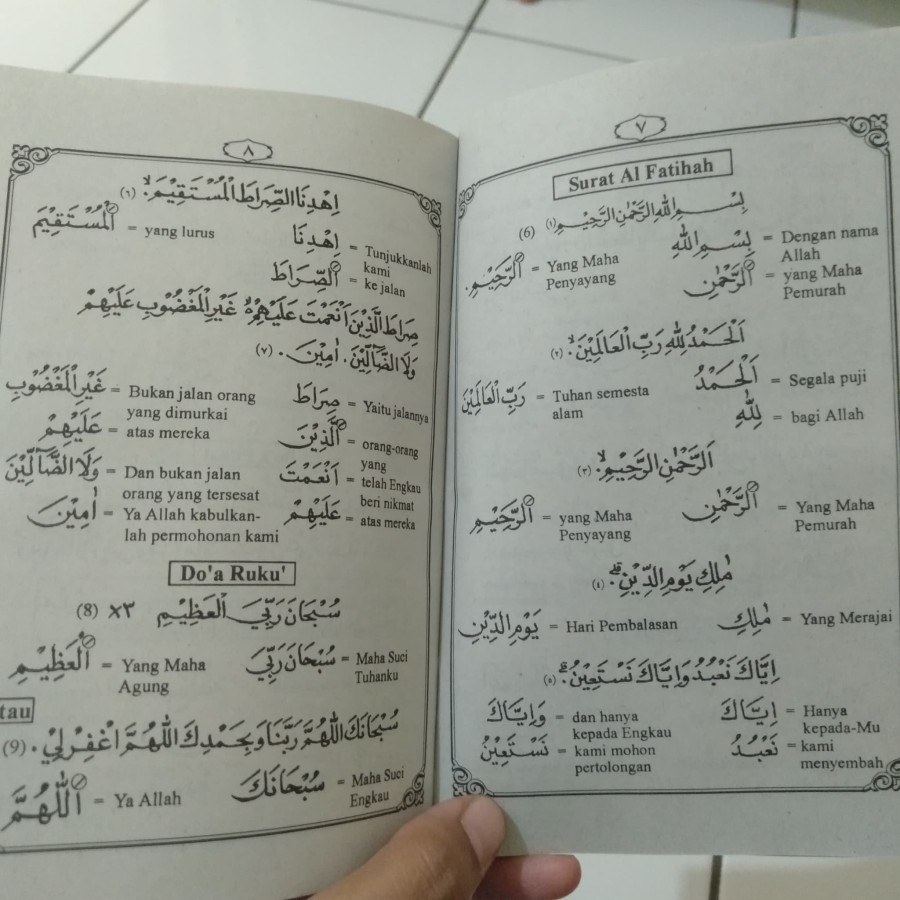 ٧
Surat Al Fatihah
(6) بِسْمِ اللهِ الرَّحْمٰنِ الرَّحِيْمِ (١)
بِسْمِ اللهِ = Dengan nama
Allah
الرَّحْمٰنِ = yang Maha
Pemurah
الرَّحِيْمِ. = Yang Maha
Penyayang
اَلْحَمْدُ لِلّٰهِ رَبِّ الْعَالَمِيْنَۙ (٢)
اَلْحَمْدُ = Segala puji
لِلّٰهِ = bagi Allah
رَبِّ الْعَالَمِيْنَ = Tuhan semesta
alam
اَلرَّحْمٰنِ الرَّحِيْمِۙ (٣)
الرَّحْمٰنِ = Yang Maha
Pemurah
الرَّحِيْمِ = yang Maha
Penyayang
مٰلِكِ يَوْمِ الدِّيْنِۗ (٤)
مٰلِكِ = Yang Merajai
يَوْمِ الدِّيْنِ = Hari Pembalasan
اِيَّاكَ نَعْبُدُ وَاِيَّاكَ نَسْتَعِيْنُۗ (٥)
اِيَّاكَ = Hanya
kepada-Mu
نَعْبُدُ = kami
menyembah
وَاِيَّاكَ = dan hanya
kepada Engkau
نَسْتَعِيْنُ = kami mohon
pertolongan
٨
اِهْدِنَا الصِّرَاطَ الْمُسْتَقِيْمَۙ (٦)
اِهْدِنَا = Tunjukkanlah
kami
الصِّرَاطَ = ke jalan
الْمُسْتَقِيْمَ = yang lurus
صِرَاطَ الَّذِيْنَ اَنْعَمْتَ عَلَيْهِمْۙ غَيْرِ الْمَغْضُوْبِ عَلَيْهِمْ
وَلَا الضَّآلِّيْنَ. اٰمِيْنَ. (٧)
صِرَاطَ = Yaitu jalannya
الَّذِيْنَ = orang-orang
yang
اَنْعَمْتَ = telah Engkau
beri nikmat
عَلَيْهِمْ = atas mereka
غَيْرِ الْمَغْضُوْبِ = Bukan jalan orang
yang dimurkai
عَلَيْهِمْ = atas mereka
وَلَا الضَّآلِّيْنَ = Dan bukan jalan
orang yang tersesat
اٰمِيْنَ = Ya Allah kabulkan-
lah permohonan kami
Do'a Ruku'
(8) سُبْحَانَ رَبِّيَ الْعَظِيْمِ ×٣
سُبْحَانَ رَبِّيَ = Maha Suci
Tuhanku
الْعَظِيْمِ = Yang Maha
Agung
tau
(9) سُبْحَانَكَ اللّٰهُمَّ رَبَّنَا وَبِحَمْدِكَ اللّٰهُمَّ اغْفِرْلِيْ.
سُبْحَانَكَ = Maha Suci
Engkau
اَللّٰهُمَّ = Ya Allah